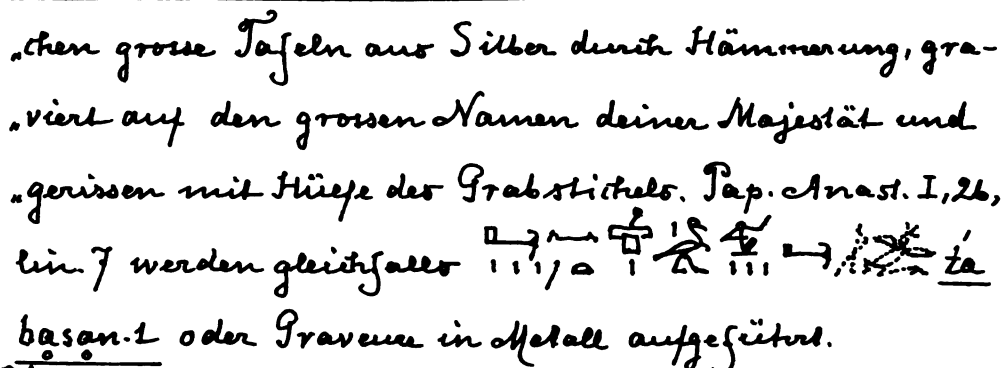 „chen grosse Tafeln aus Silber durch Hämmerung, gra-
„viert auf den grossen Namen deiner Majestät und
„gerissen mit Hüelfe des Grabstichels. Pap. Anast. I, 26,
lin. 7 werden gleichfalls ṭa
basan.t oder Graveure in Metall aufgeführt.